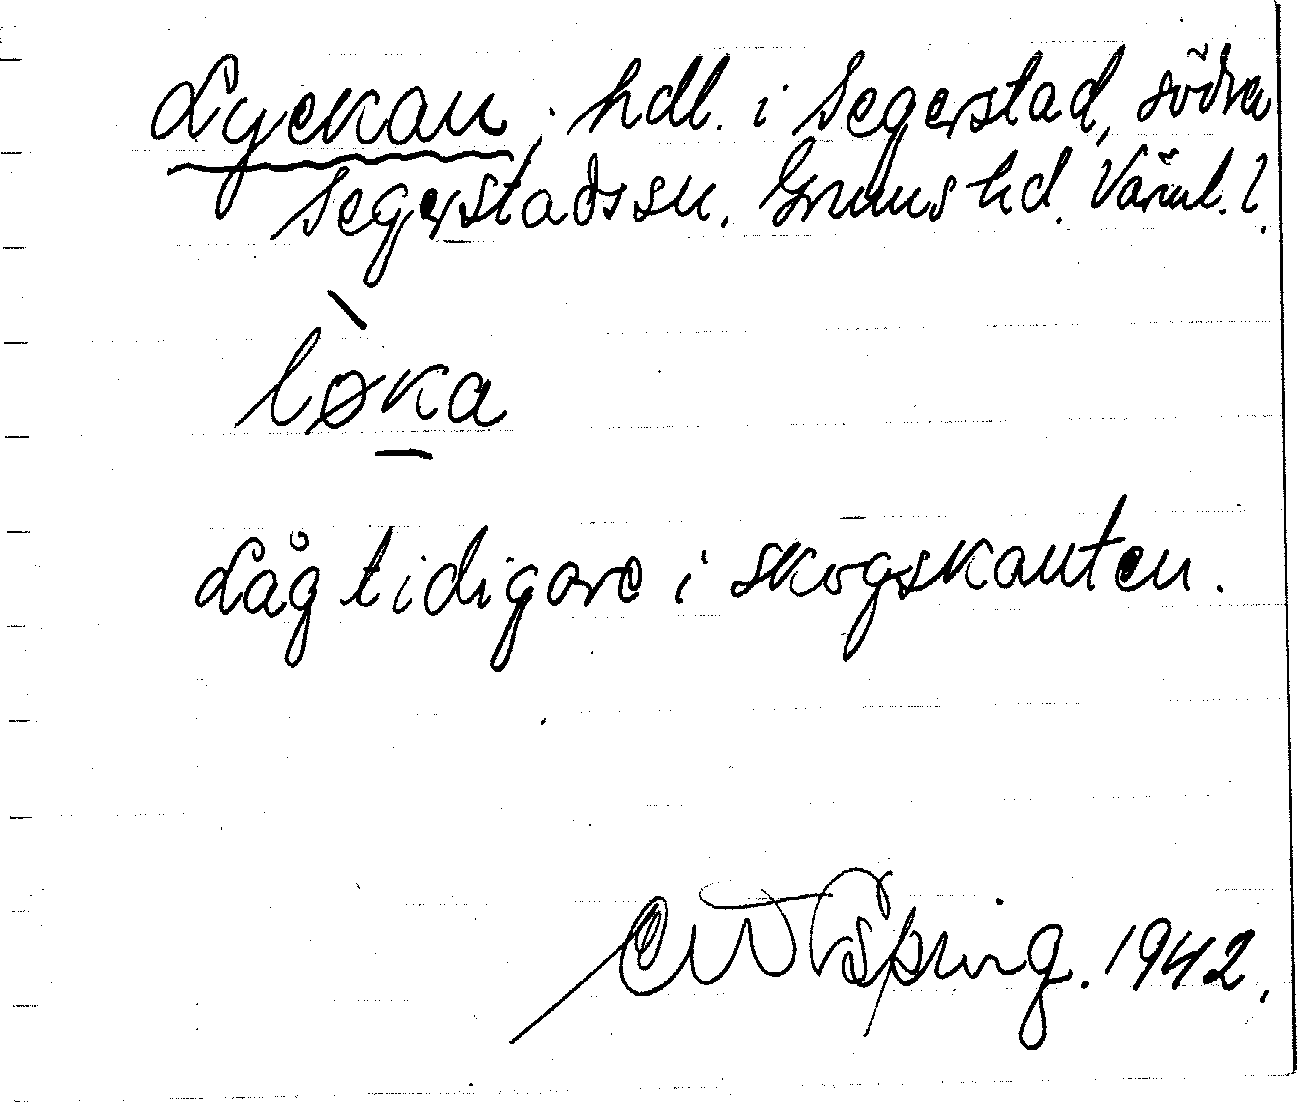 Lyckan, hdl. i Segerstad, södra
Segerstads sn. Grums hd. Värml. l.
løka
Låg tidigare i skogskanten.
1942.